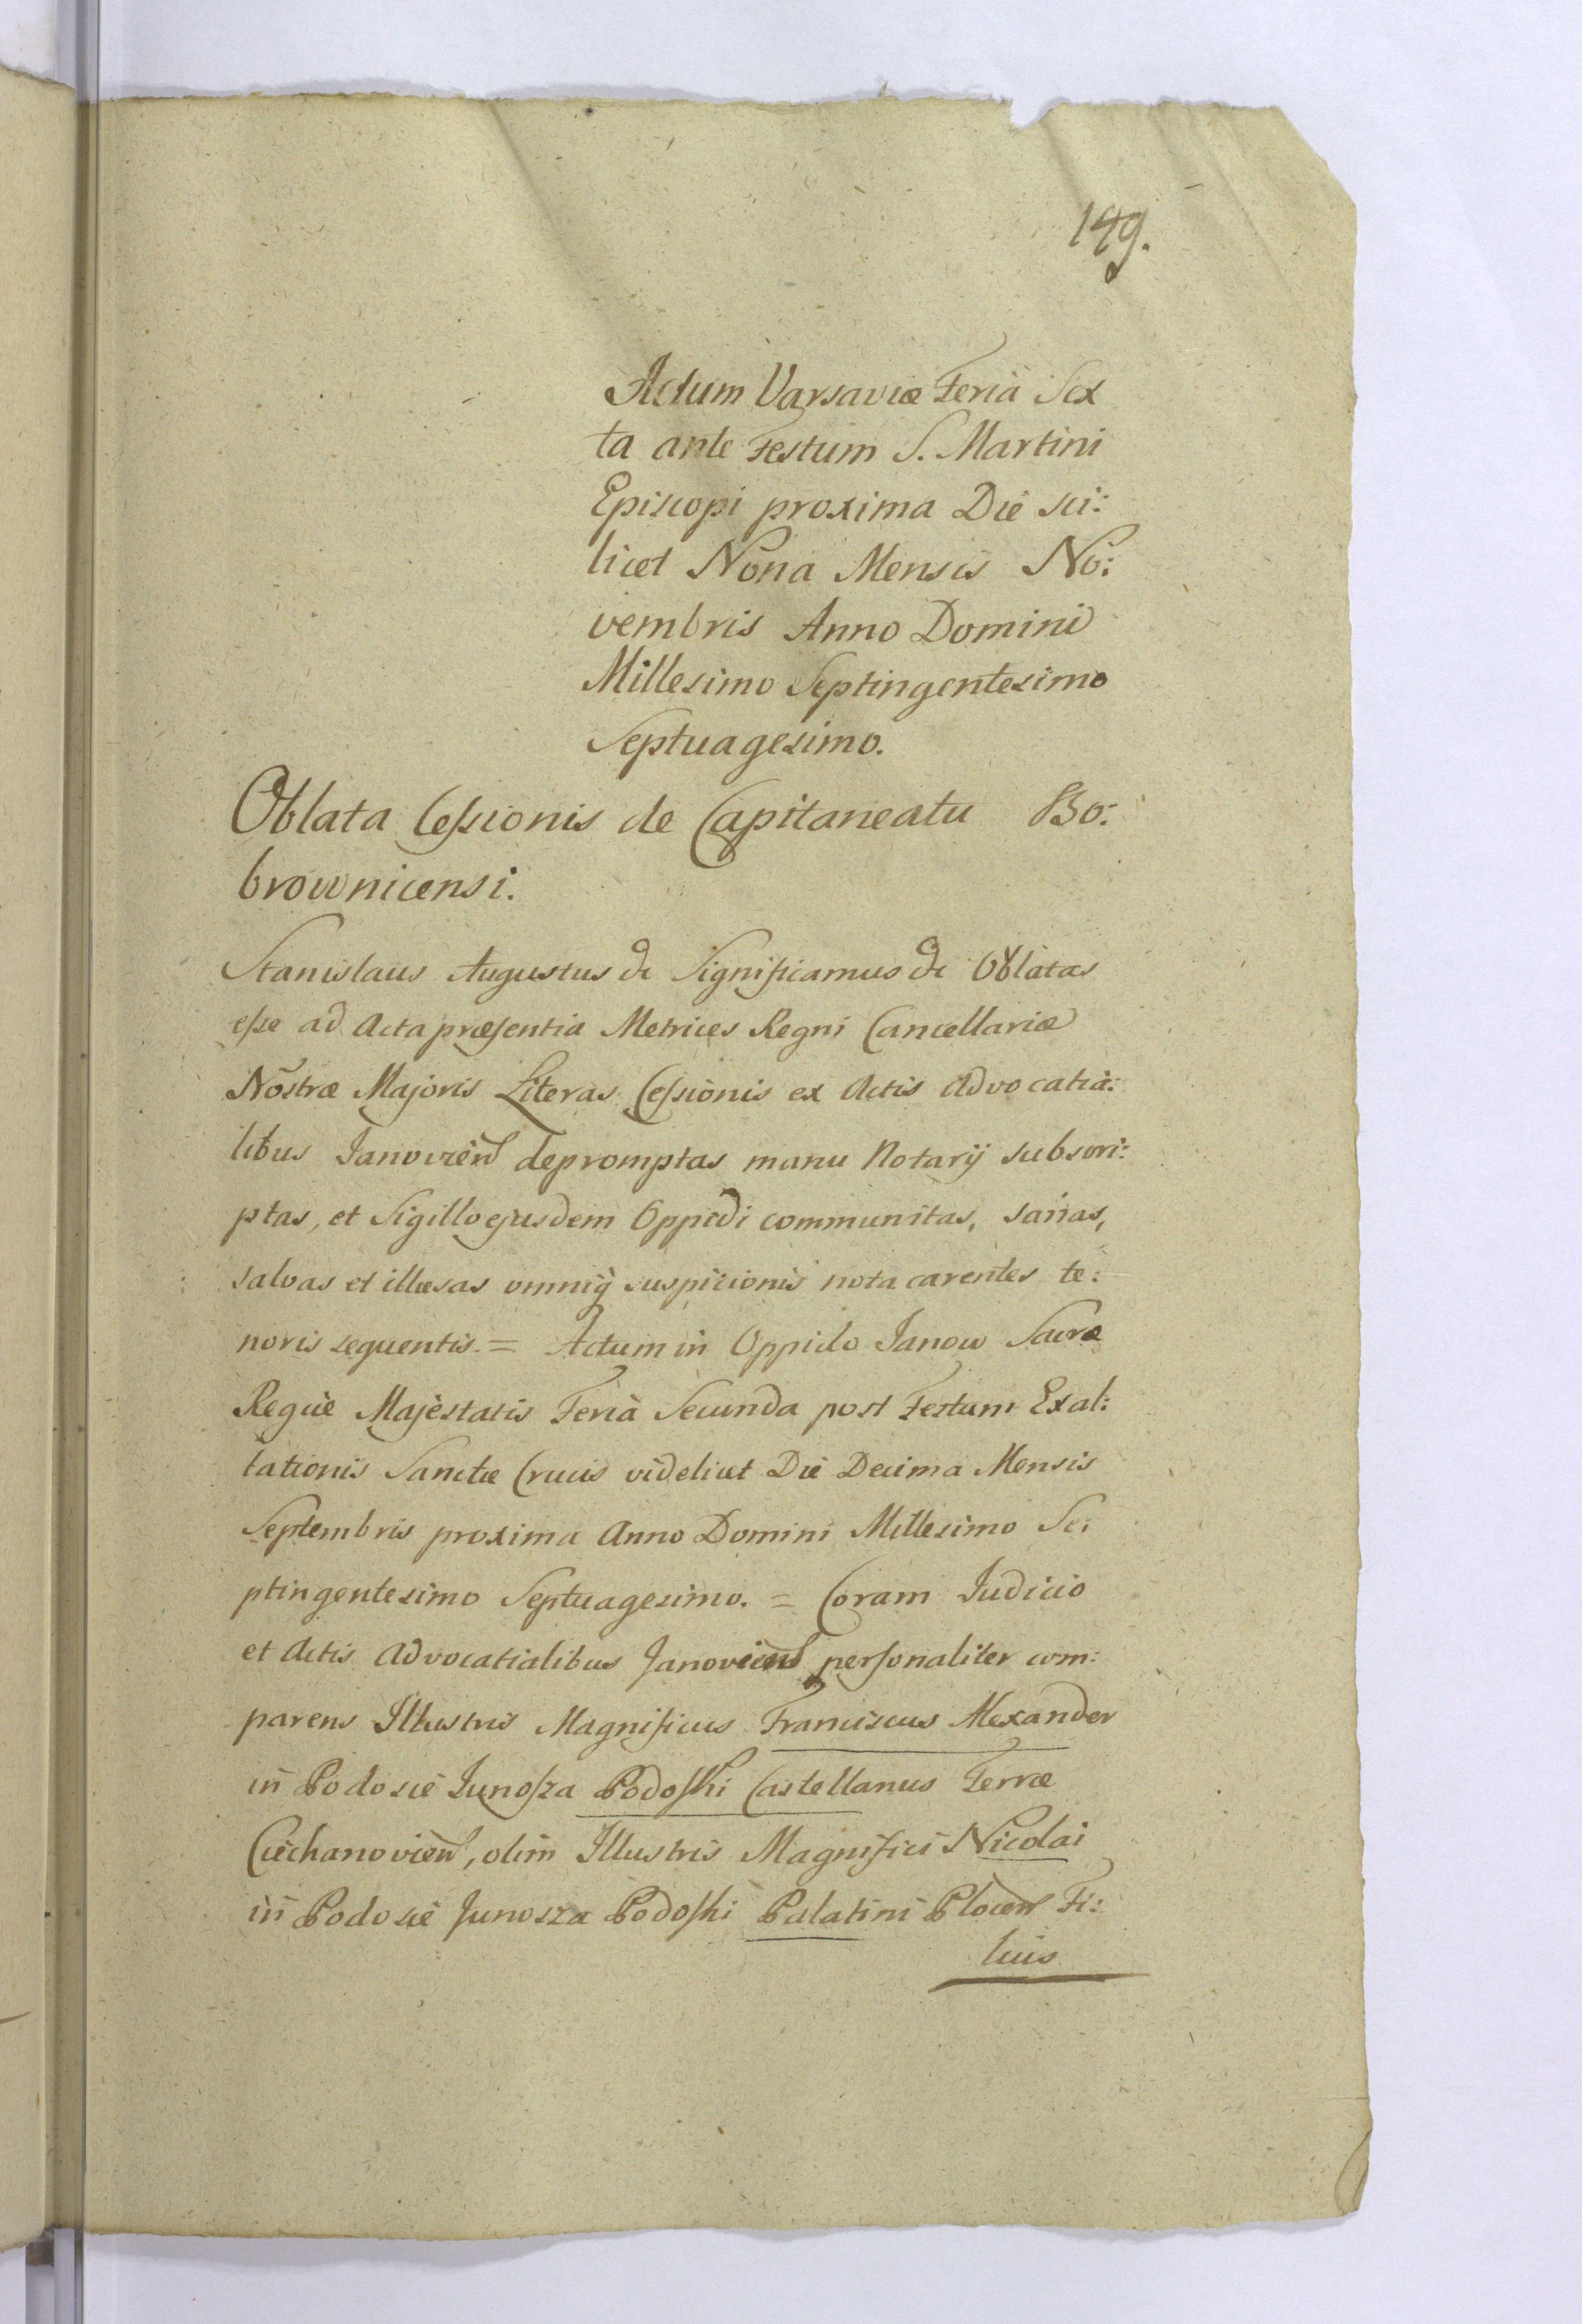 149.
Actum Varsaviæ Feria Sex
ta ante Festum S. Martini
Episcopi proxima Die sci:
licet Nona Mensis No:
vembris Anno Domini
Millesimo Septingentesimo
Septuagesimo.
Oblata Ceſsionis de Capitaneatu Bo:
brownicensi.
Stanislaus Augustus &c Significamus &c Oblatas
eſse ad Acta præſentia Metrices Regni Cancellariæ
Nostræ Majoris Literas Ceſsionis ex Actis Advocatia:
libus Janovien depromptas manu Notarij subscri:
ptas, et Sigillo ejusdem Oppidi communitas, sanas,
salvas et illæsas omniq suspicionis nota carentes te:
noris sequentis = Actum in Oppido Janow Sacræ
Regiæ Majestatis Feria Secunda post Festum Exal:
tationis Sanctæ Crucis videlicet Die Decima Mensis
Septembris proxima Anno Domini Millesimo Se:
ptingentesimo Septuagesimo. = Coram Judicio
et Actis Advocatialibus Janovien perſonaliter com:
parens Illustris Magnificus Franciscus Alexander
in Podosie Junoſza Podoſki Castellanus Terræ
Ciechanovien, olim Illustris Magnifici Nicolai
in Podosie Junosza Podoſki Palatini Plocen Fi:
lius